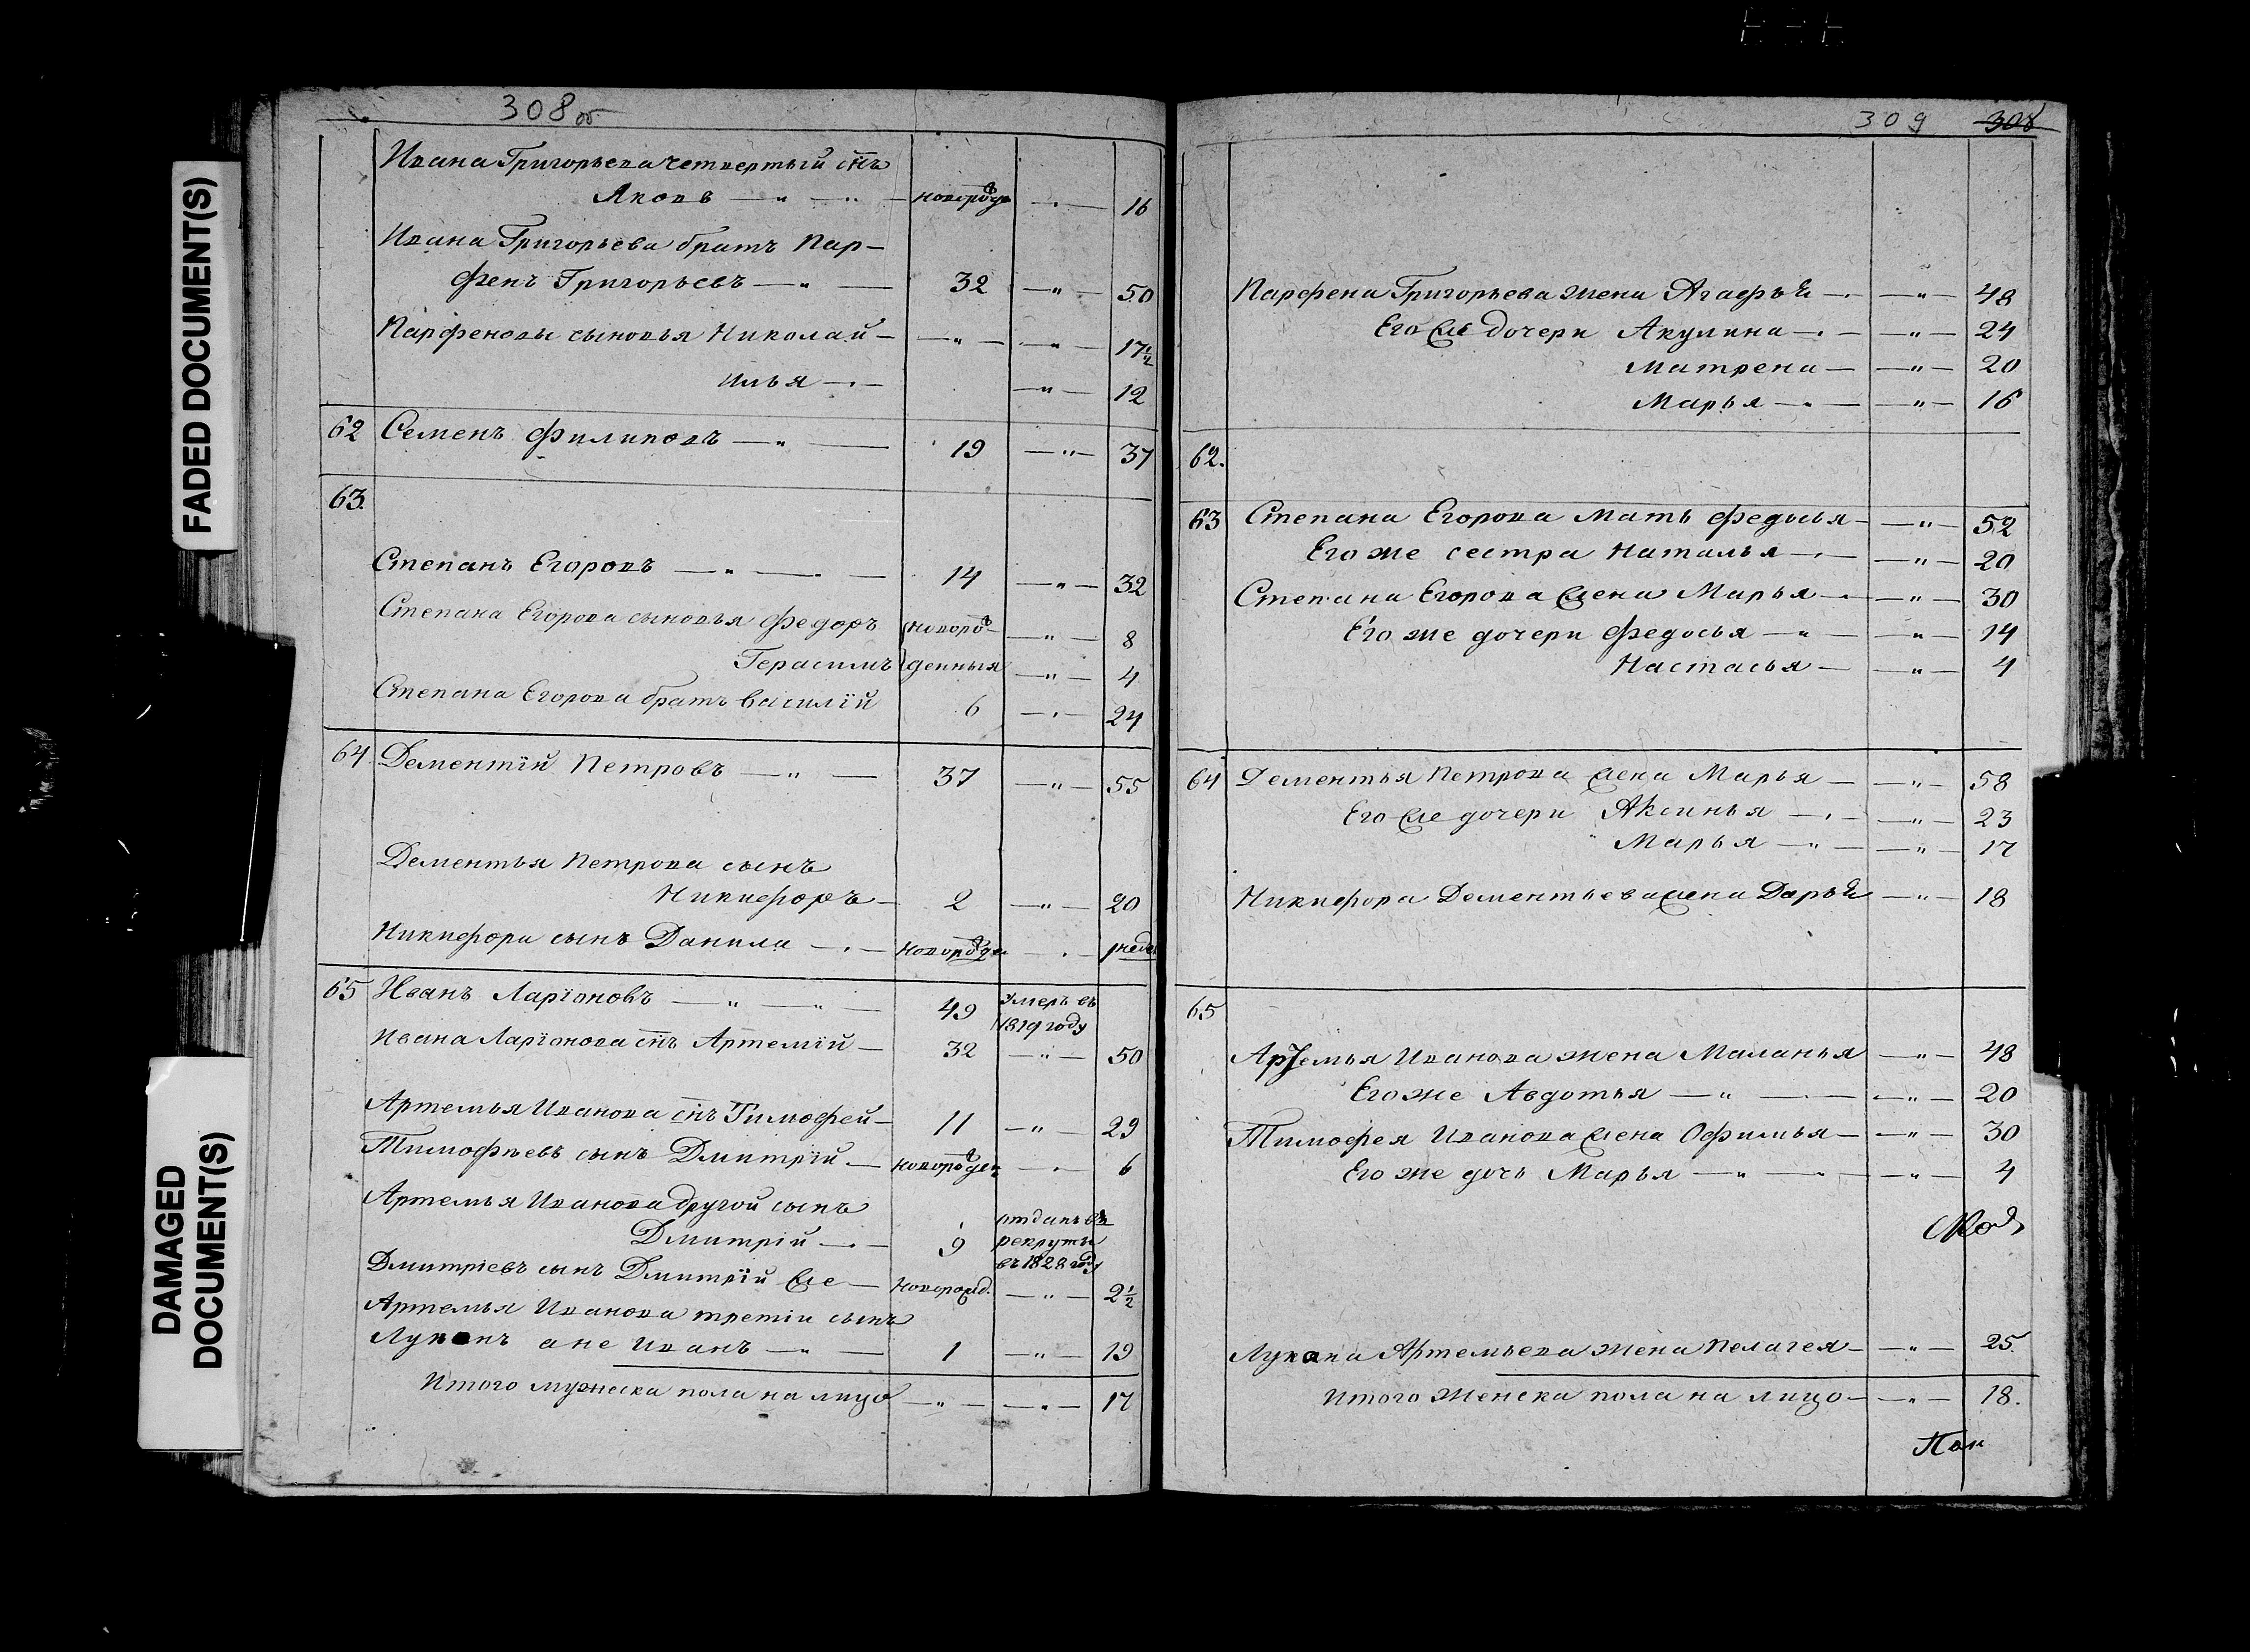 308 об
Ивана Григорьева четвертый снъ
Яковъ — " — " — новорожде — " — 16
Ивана Григорьева братъ Пар-
фенъ Григорьевъ — " — 32 — " — 50
Парфеновы сыновья Николай — — " — — " — 17½
Илья — " — — " — 12
62 Семенъ Филиповъ — " — 19 — " — 37
63.
Степанъ Егоровъ — " — 14 — " — 32
Степана Егорова сыновья Федоръ новорож- — " — 8
Герасимъ денныя — " — 4
Степана Егорова братъ Василій 6 — " — 24
64 Дементій Петровъ — " — 37 — " — 55
Дементья Петрова сынъ
Никифоръ — 2 — " — 20
Никифора сынъ Данила — " — новорожде — " —
65 Иванъ Ларіоновъ — " — " — 49 умеръ въ
1819 году
Ивана Ларіонова снъ Артемій — 32 — " — 50
Артемья Иванова снъ Тимофей — 11 — " — 29
Тимофѣевъ сынъ Дмитрій — новорожден — " — 6
Артемья Иванова другой сынъ
Дмитрій — " — 9 отданъ въ
рекруты
въ 1828 году
Дмитріевъ сынъ Дмитрій же — новорожд. — " — 2½
Артемья Иванова третіи сынъ
Луканъ а не Иванъ — " — 1 — " — 19
Итого мужеска пола на лицо — " — — " — 17
309 308
Парфена Григорьева жена Агафья — " — — " — 48
Его же дочери Акулина — " — — " — 24
Матрена — — " — 20
Марья — " — — " — 16
62.
63 Степана Егорова мать Федосья — — " — 52
Его же сестра Наталья — " — — " — 20
Степана Егорова жена Марья — " — — " — 30
Его же дочери Федосья — " — — " — 14
Настасья — — " — 4
64 Дементья Петрова жена Марья — — " — 58
Его же дочери Аксинья — " — — " — 23
Марья — " — — " — 17
Никифора Дементьева жена Дарья — " — 18
65
Артемья Иванова жена Маланья — " — 48
Его же Авдотья — " — — " — 20
Тимофея Иванова жена Офимья — — " — 30
Его же дочь Марья — " — — " — 4
Лукана Артемьева жена Пелагея — — " — 25.
Итого женска пола на лицо — — " — 18.
FADED DOCUMENT(S)
DAMAGED
DOCUMENT(S)